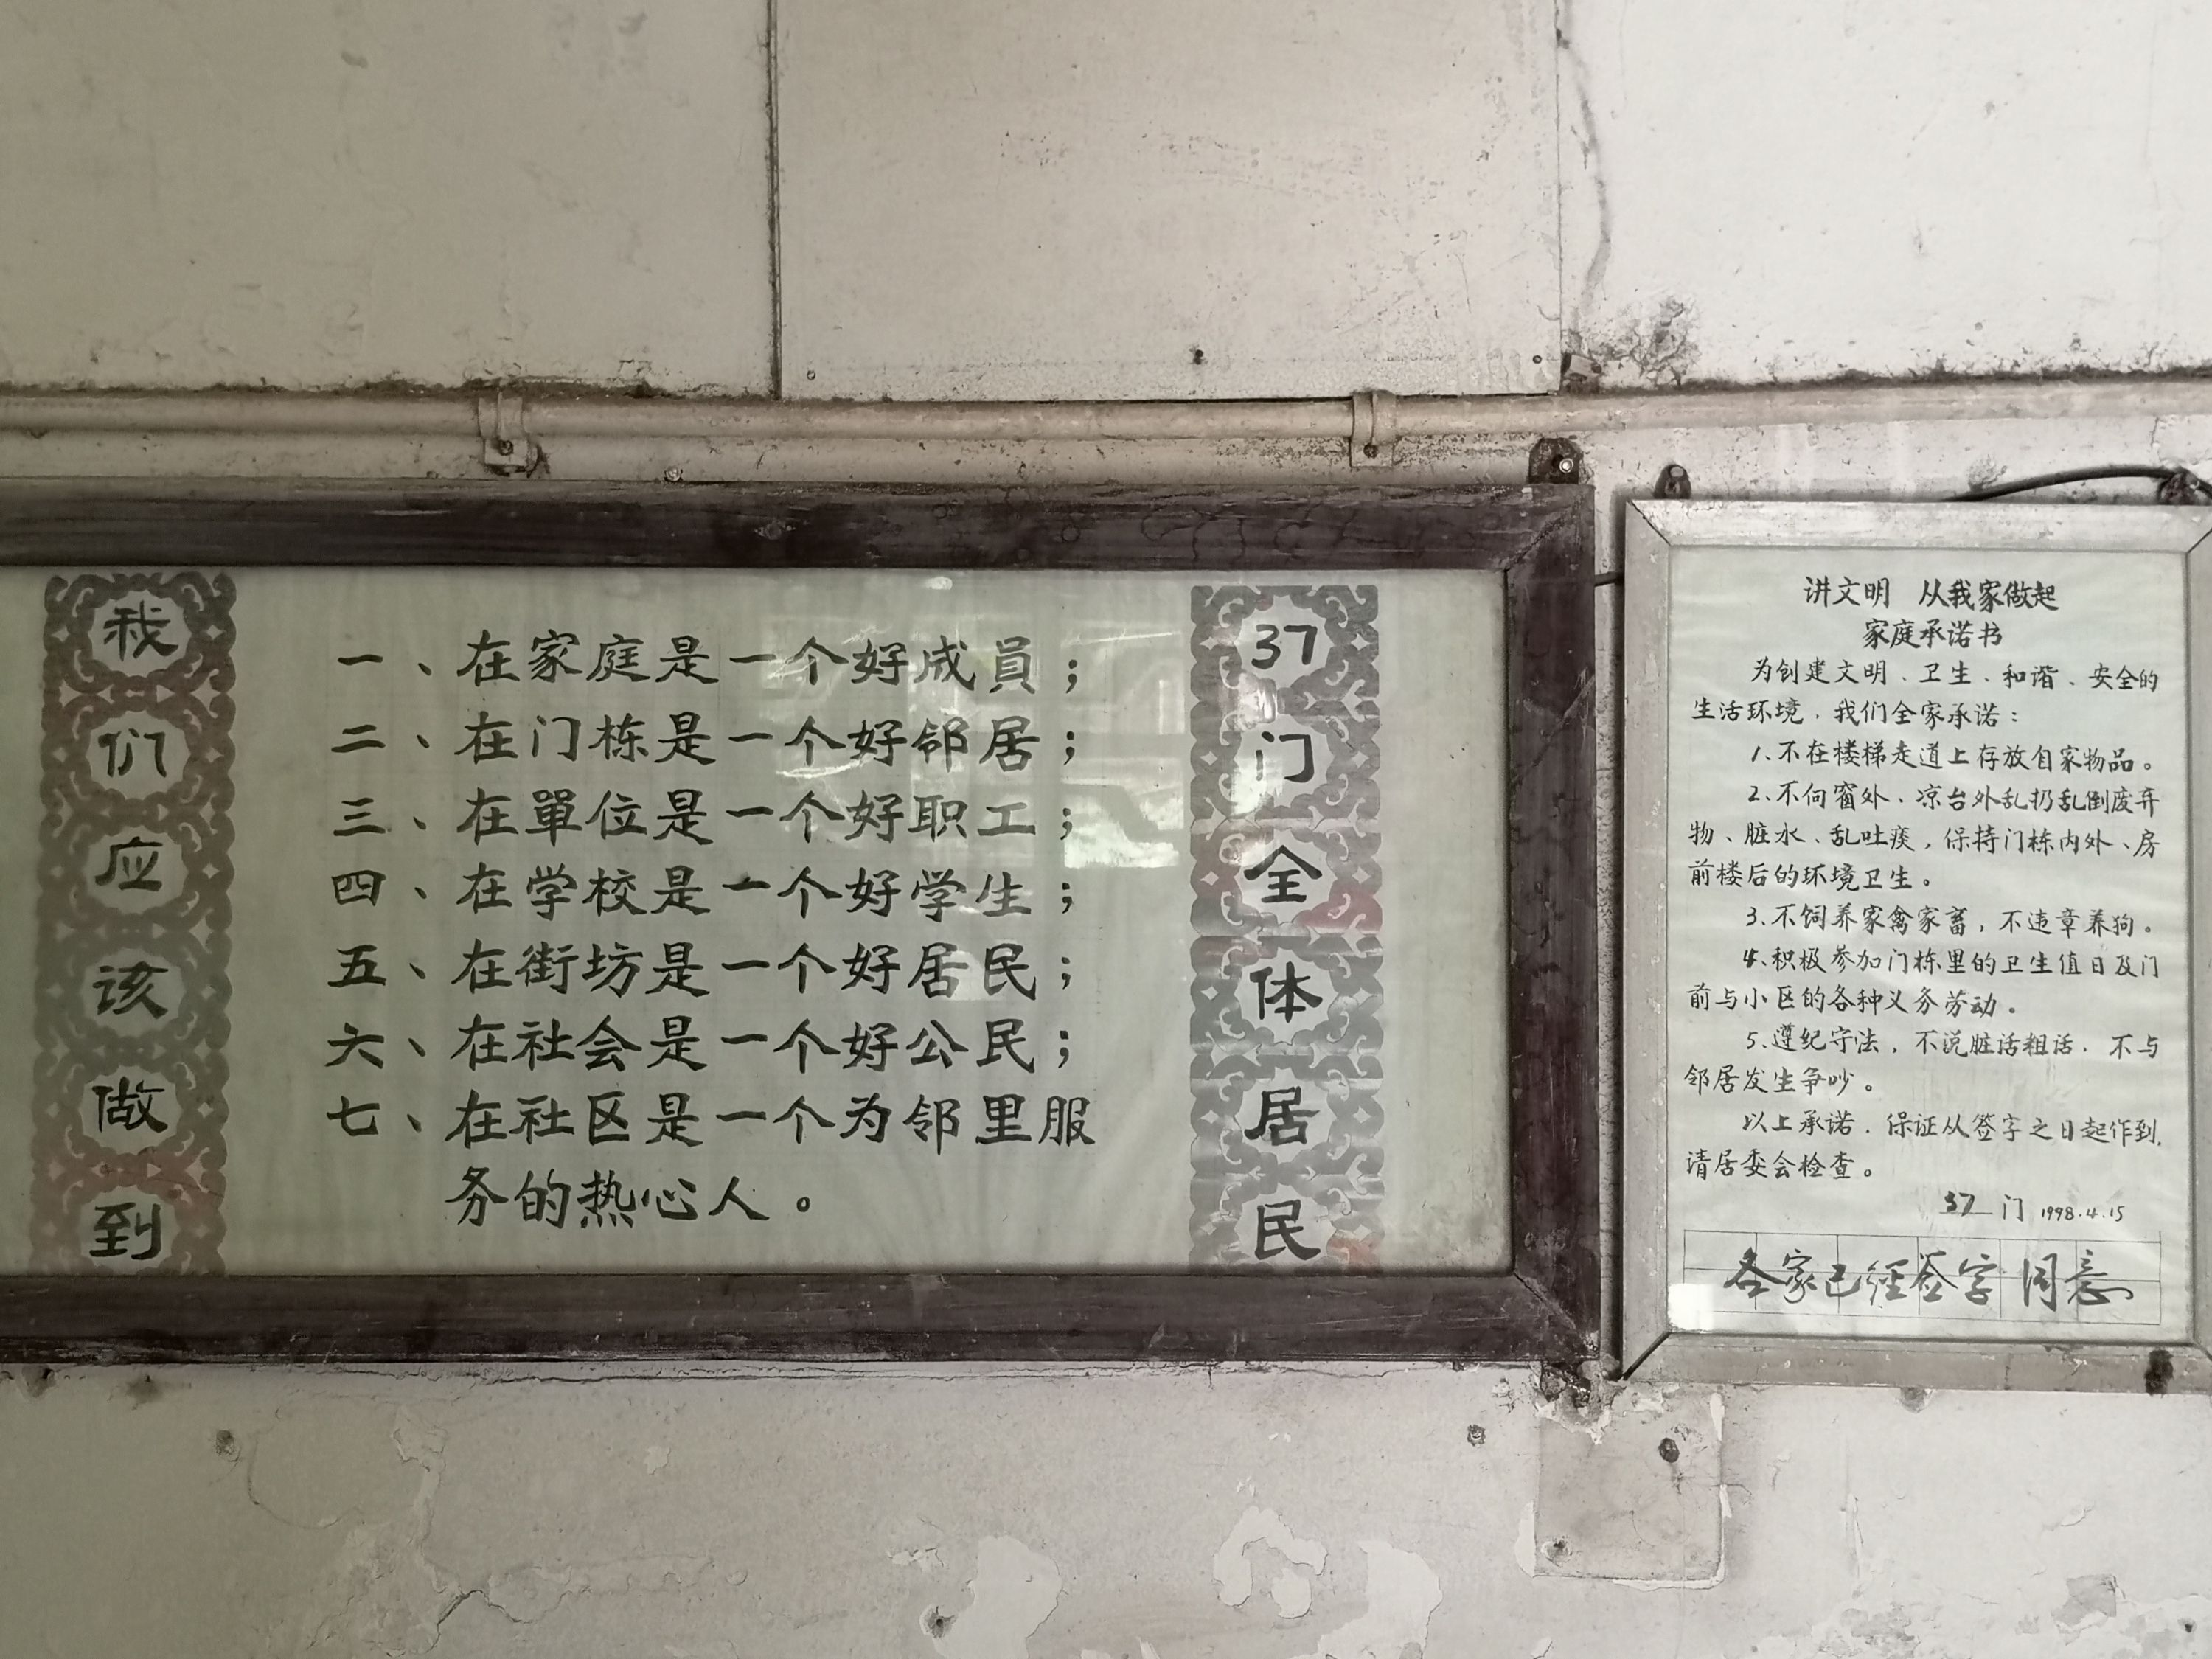 我们应该做到
一、在家庭是一个好成員；
二、在门栋是一个好邻居；
三、在單位是一个好职工；
四、在学校是一个好学生；
五、在街坊是一个好居民；
六、在社会是一个好公民；
七、在社区是一个为邻里服
务的热心人。
37门全体居民
讲文明 从我家做起
家庭承诺书
为创建文明、卫生、和谐、安全的
生活环境，我们全家承诺：
1.不在楼梯走道上存放自家物品。
2.不向窗外、凉台外乱扔乱倒废弃
物、脏水、乱吐痰，保持门栋内外、房
前楼后的环境卫生。
3.不饲养家禽家畜，不违章养狗。
4.积极参加门栋里的卫生值日及门
前与小区的各种义务劳动。
5.遵纪守法，不说脏话粗话，不与
邻居发生争吵。
以上承诺，保证从签字之日起作到，
请居委会检查。
37门 1998.4.15
各家已經签字同意